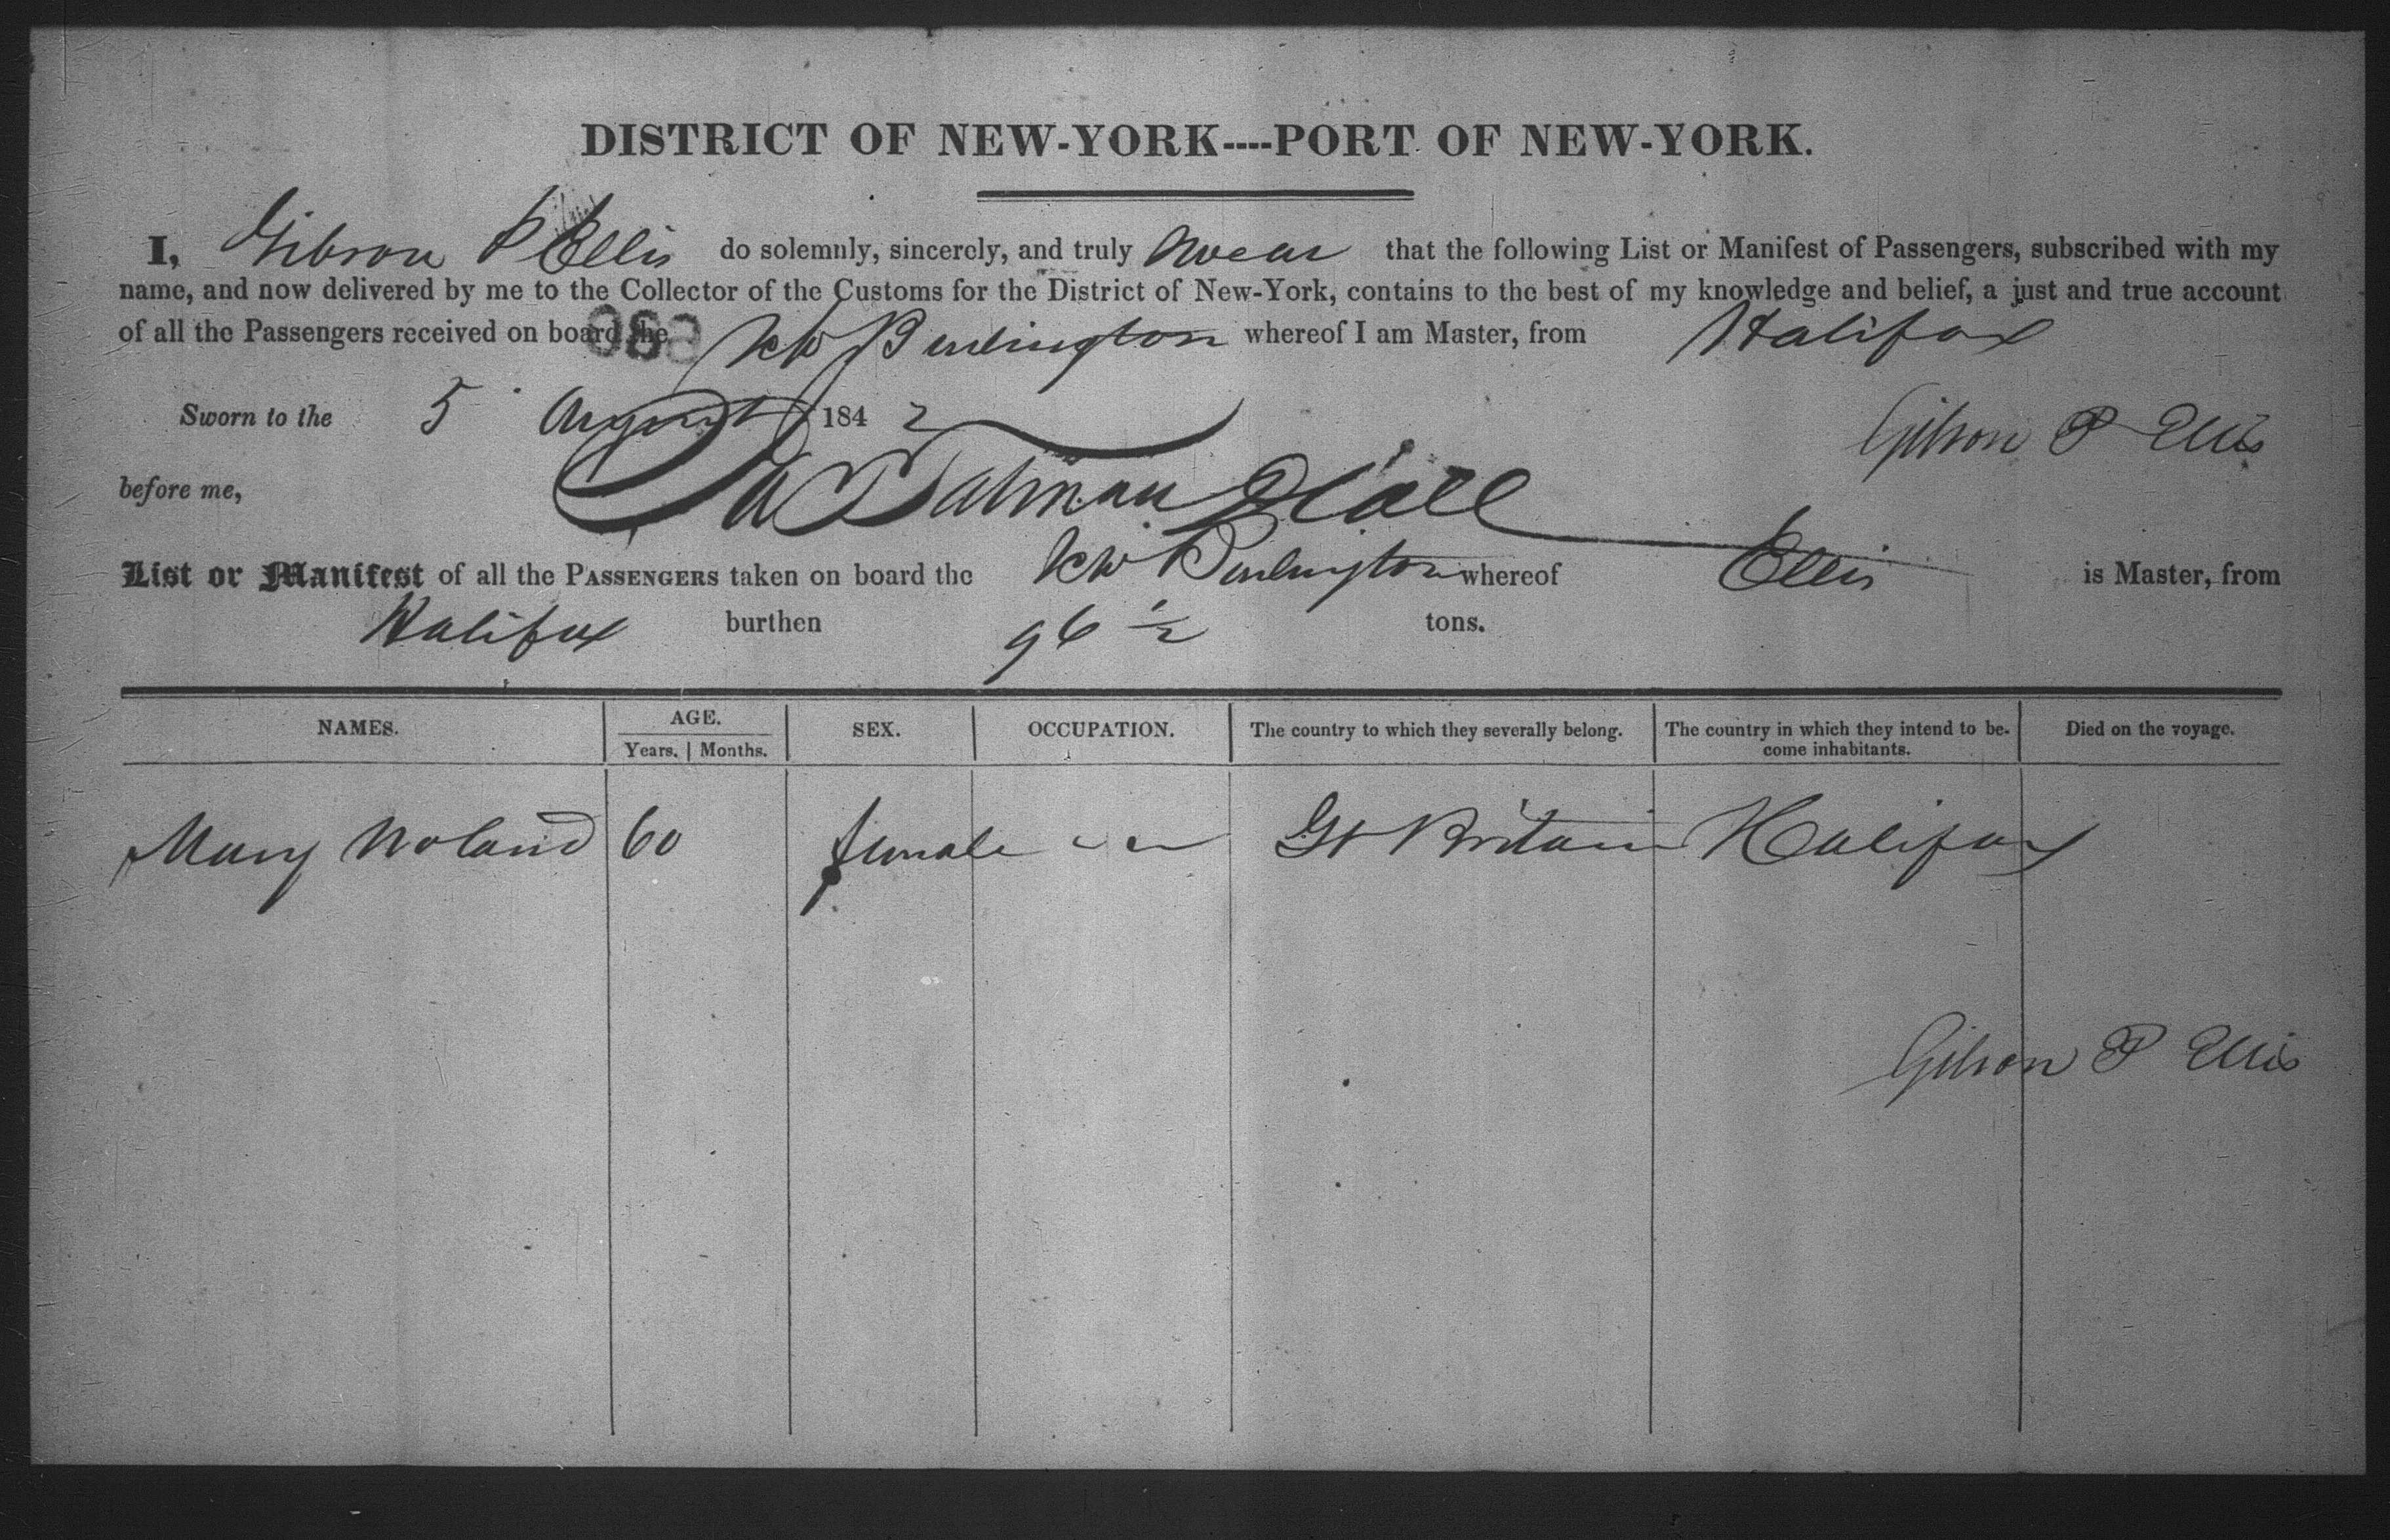 DISTRICT OF NEW-YORK----PORT OF NEW-YORK.
I, Gibson P Ellis do solemnly, sincerely, and truly swear that the following List or Manifest of Passengers, subscribed with my
name, and now delivered by me to the Collector of the Customs for the District of New-York, contains to the best of my knowledge and belief, a just and true account
of all the Passengers received on board the Schr Burlington whereof I am Master, from Halifax
Sworn to the 5 August 1842 Gibson P Ellis
before me, Talman
List or Manifest of all the PASSENGERS taken on board the Schr Burlington whereof Ellis is Master, from
Halifax burthen 96 1/2 tons.
NAMES. AGE. Years. Months. SEX. OCCUPATION. The country to which they severally belong. The country in which they intend to be-
come inhabitants. Died on the voyage.
Mary Noland 60 female Gt Britain Halifax
Gibson P Ellis